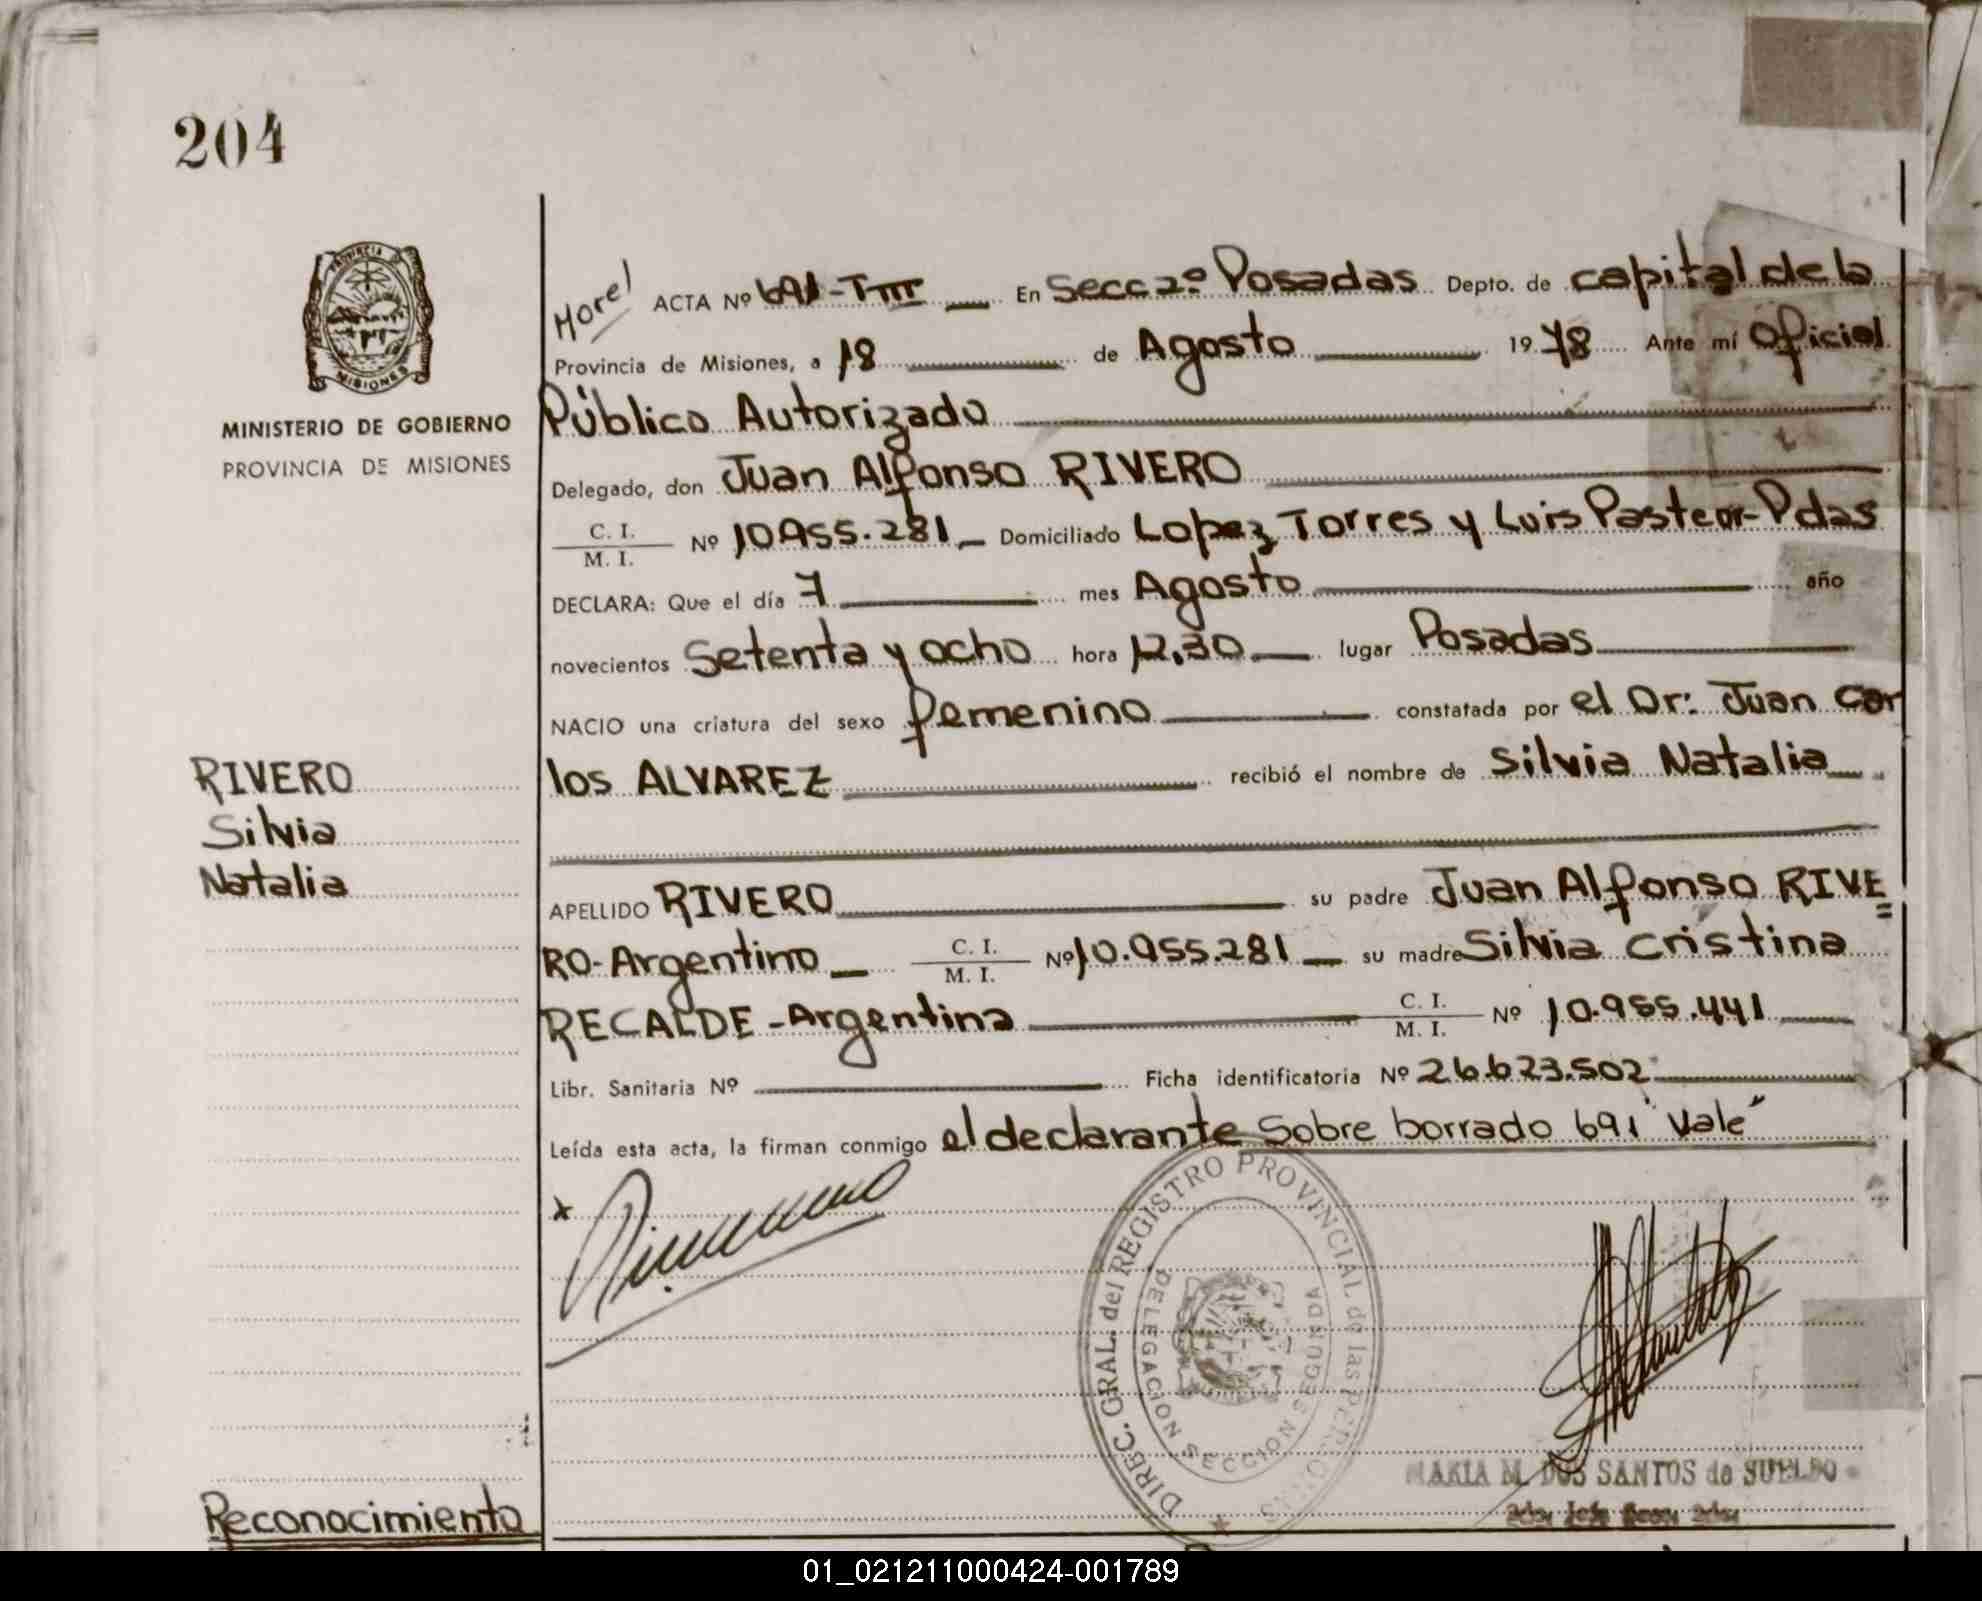 204
PROVINCIA DE
MISIONES
MINISTERIO DE GOBIERNO
PROVINCIA DE MISIONES
RIVERO
Silvia
Natalia
Reconocimiento
ACTA Nº 691-TIII En Secc 2º Posadas Depto. de capital de la
Provincia de Misiones, a 18 de Agosto 1978 Ante mí Oficial
Público Autorizado
Delegado, don Juan Alfonso RIVERO
C. I.
M. I. Nº 10.955.281 Domiciliado Lopez Torres y Luis Pasteur-Pdas
DECLARA: Que el día 7 mes Agosto año
novecientos Setenta y ocho hora 12,30 lugar Posadas
NACIO una criatura del sexo femenino constatada por el Dr: Juan Car
los ALVAREZ recibió el nombre de Silvia Natalia
APELLIDO RIVERO su padre Juan Alfonso RIVE=
RO-Argentino C. I. M. I. Nº 10.955.281 su madre Silvia Cristina
RECALDE-Argentina C. I. M. I. Nº 10.955.441
Libr. Sanitaria Nº Ficha identificatoria Nº 26.623.502
Leída esta acta, la firman conmigo el declarante Sobre borrado 691 "Vale"
DIREC. GRAL. del REGISTRO PROVINCIAL de las PERSONAS
DELEGACION SECCION SEGUNDA
MARIA M. DOS SANTOS de SUELDO
01_021211000424-001789